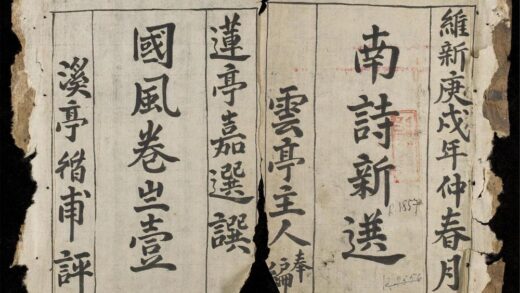 維新庚戌年仲春月
南詩新選
雲亭主人奉編
蓮亭嘉選譔
國風卷之壹
溪亭甫評